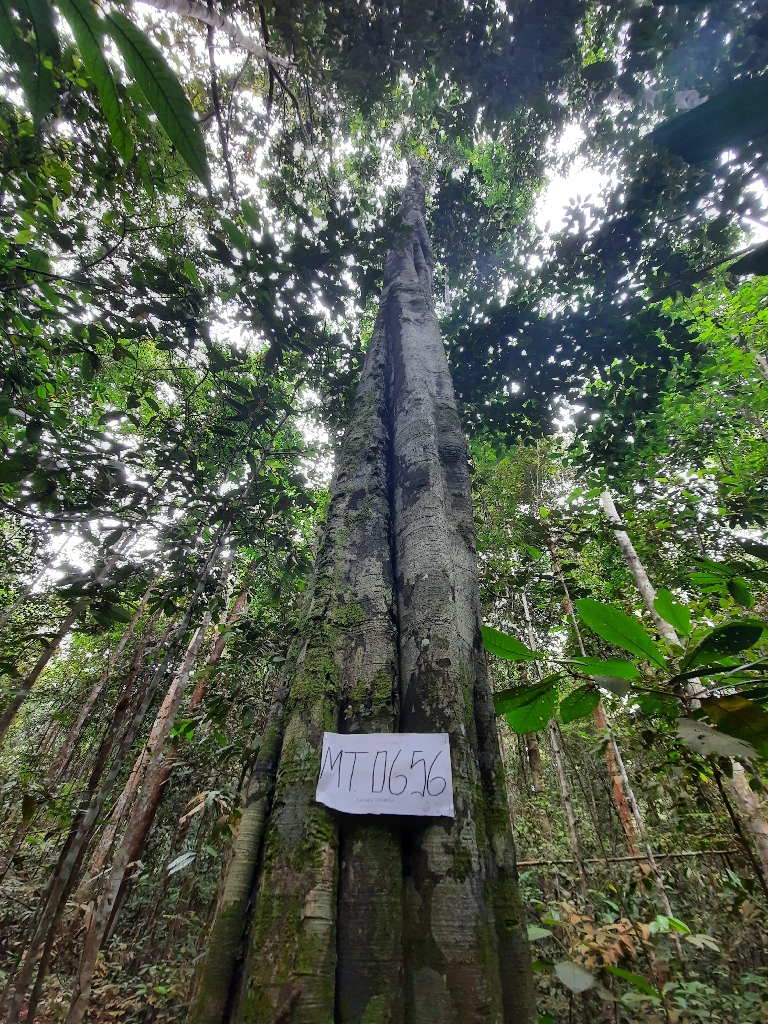 MT. 0656